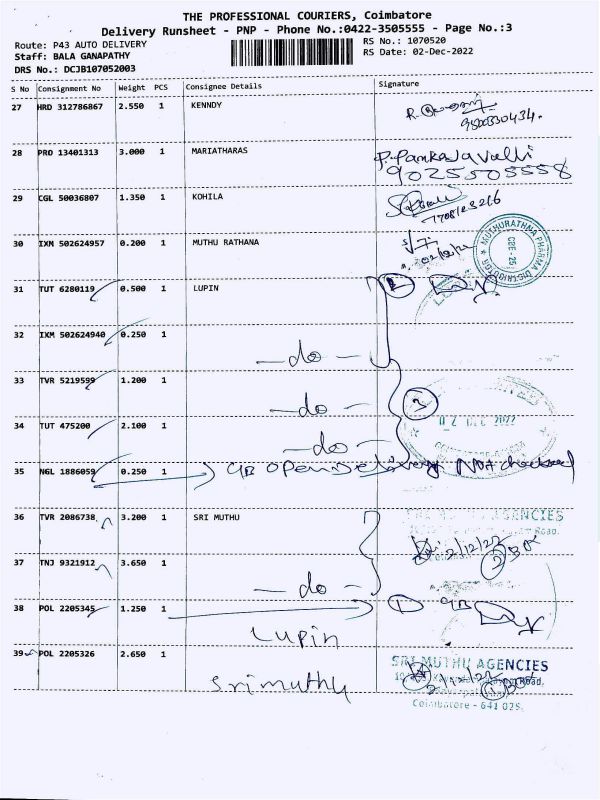 THE PROFESSIONAL COURIERS, Coimbatore
Delivery Runsheet - PNP - Phone No.:0422-3505555 - Page No.:3
Route: P43 AUTO DELIVERY
RS No.: 1070520
Staff: BALA GANAPATHY
RS Date: 02-Dec-2022
DRS No.: DCJB107052003
S No Consignment No Weight PCS Consignee Details Signature
27 HRD 312786867 2.550 1 KENNDY
9500330434.
28 PRO 13401313 3.000 1 MARIATHARAS P. Pankajavalli
9025505558
29 CGL 50036807 1.350 1 KOHILA
30 IXM 502624957 0.200 1 MUTHU RATHANA
MUTHURATHNA PHARMA DISTRIBUTOR
CBE - 25
31 TUT 6280119 0.500 1 LUPIN
32 IXM 502624940 0.250 1
- do -
33 TVR 5219599 1.200 1
- do -
3
34 TUT 475200 2.100 1
02 DEC 2022
- do -
35 NGL 1886059 0.250 1 Open Delivery Not checked
36 TVR 2086738 3.200 1 SRI MUTHU SRI MUTHU AGENCIES
Road.
2/12/22
2 Box
37 TNJ 9321912 3.650 1
- do -
38 POL 2205345 1.250 1
Lupin
39 POL 2205326 2.650 1 SRI MUTHU AGENCIES
Road,
Srimuthu
Coimbatore - 641 025.